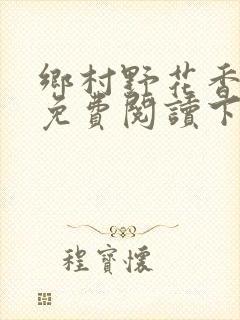 鄉村野花香
免費閱讀下
程寶懷